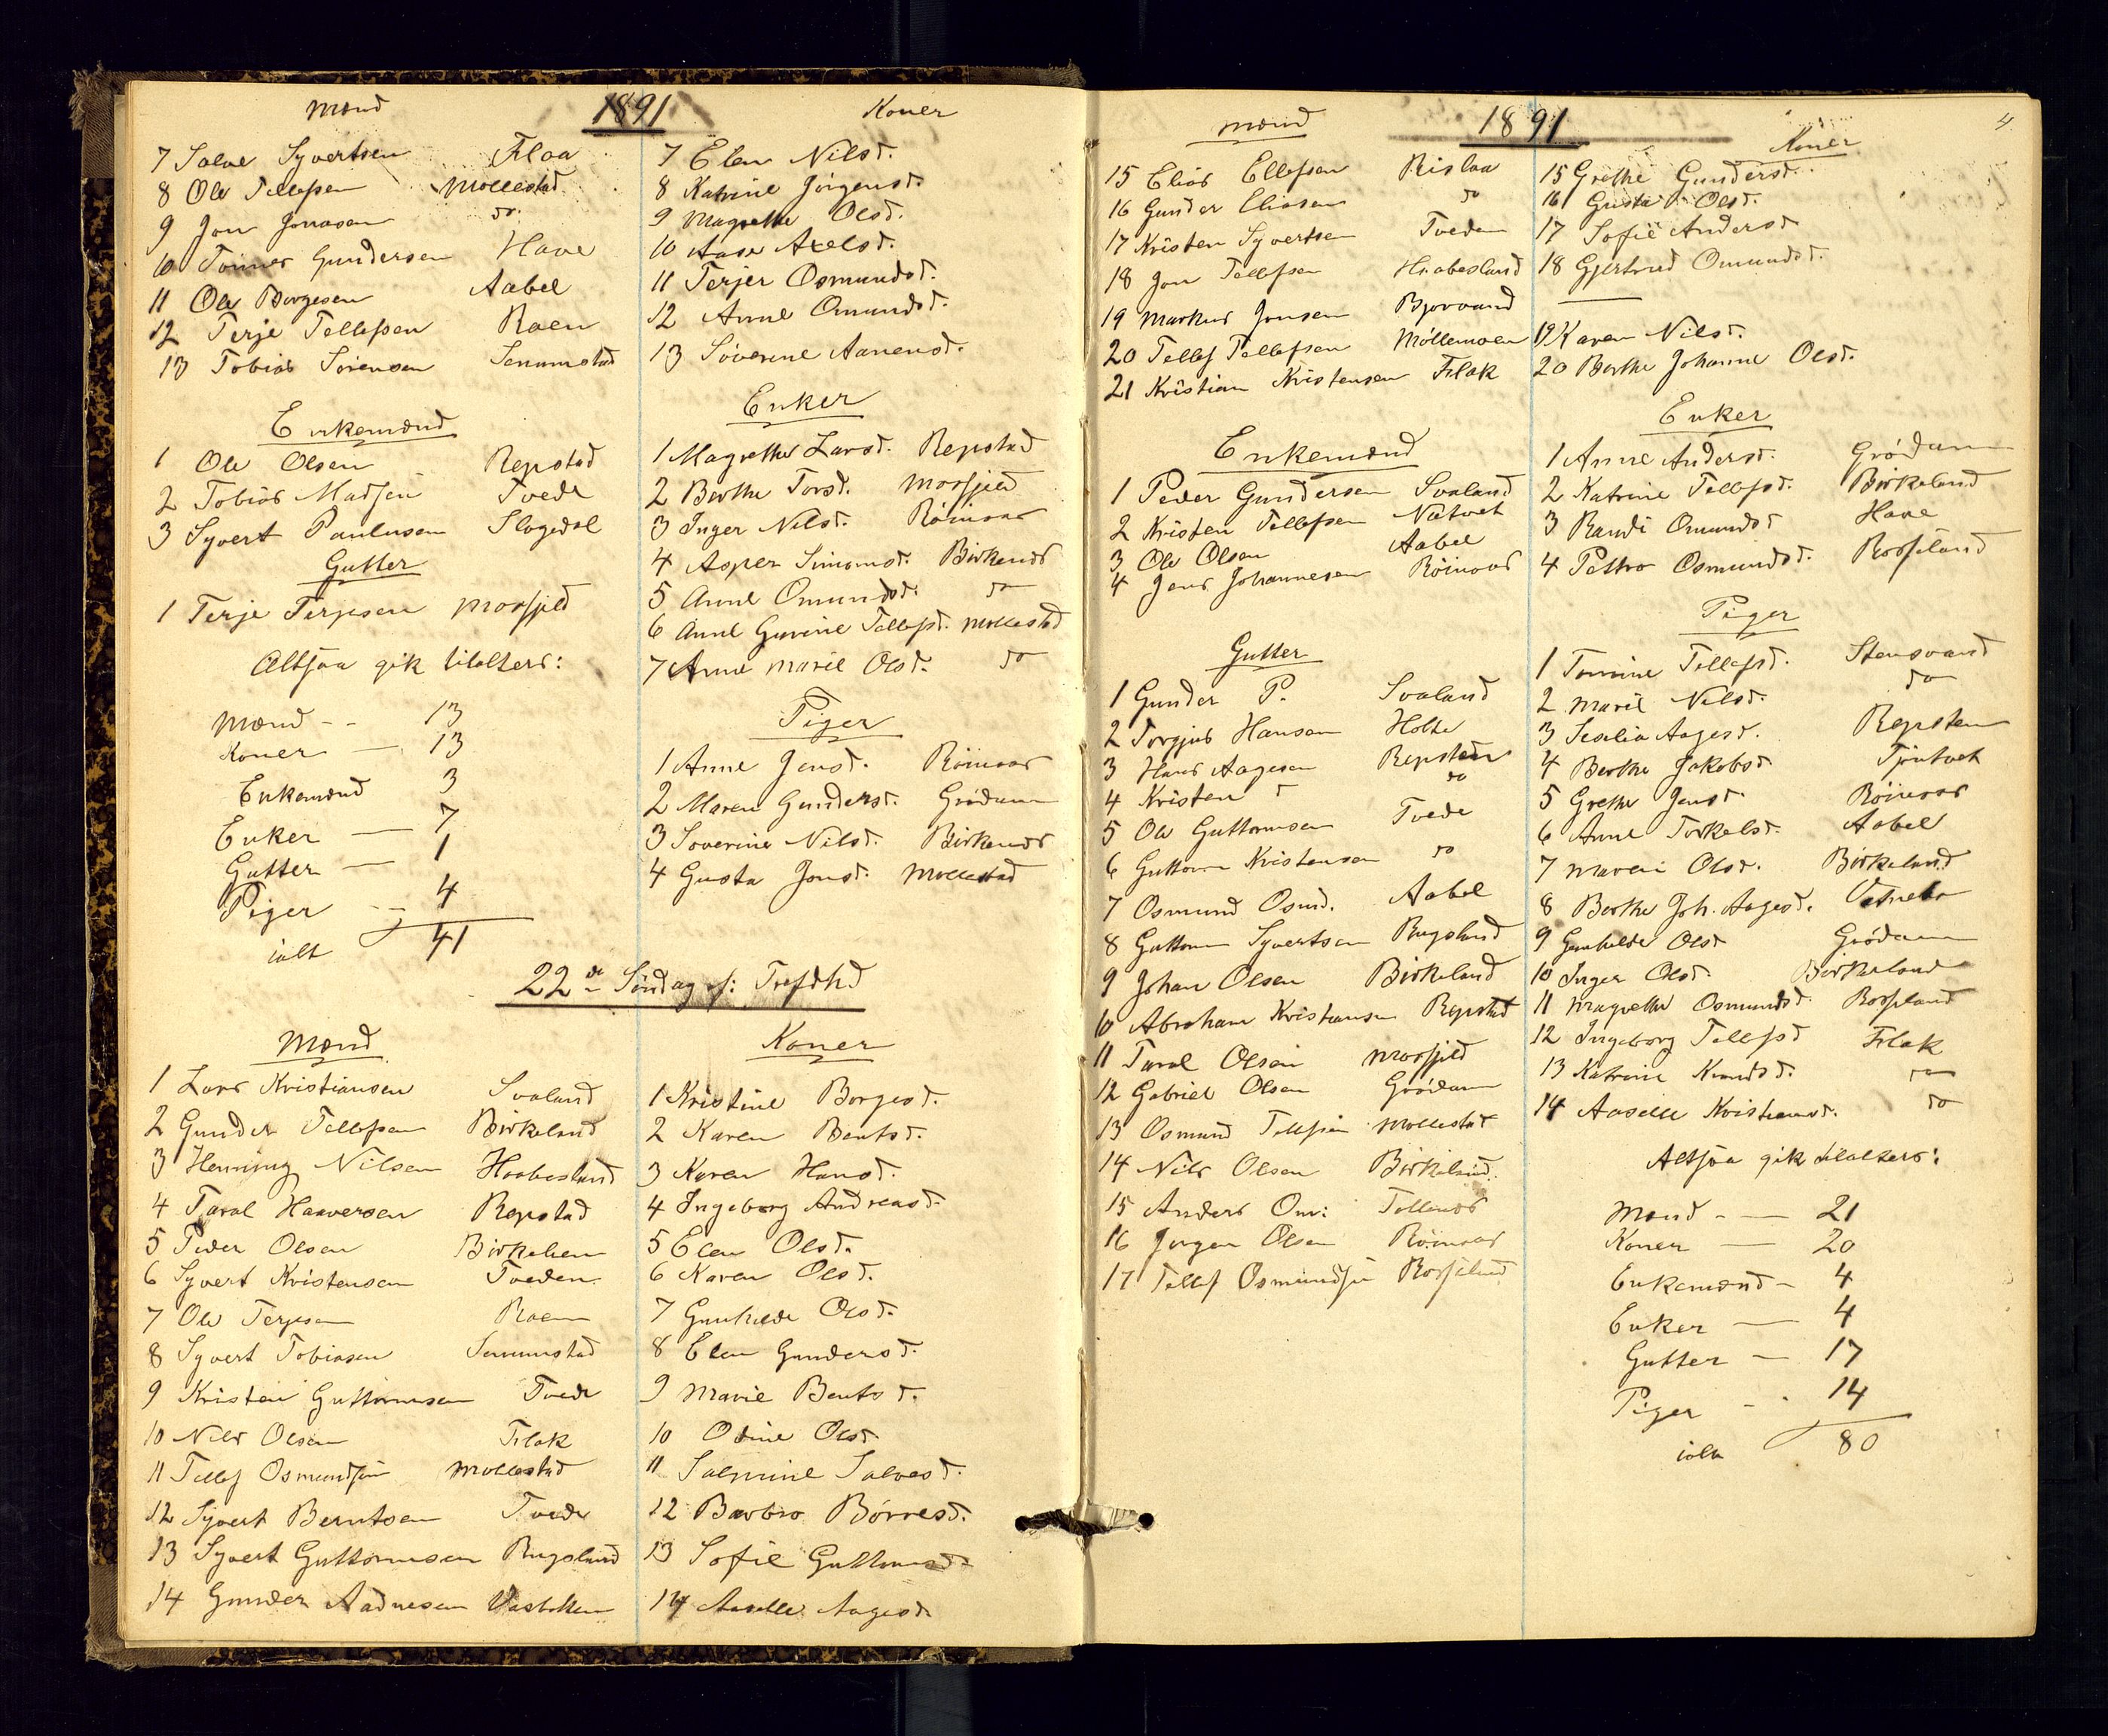 1891
Mænd
7 Salve Syvertsen Flaa
8 Ole Tellefsen Mollestad
9 Jon Jonasen do
10 Tønnes Gundersen Have
11 Ole Borgesen Aabel
12 Terje Tellefsen Raen
13 Tobias Sørensen Senumstad
Enkemænd
1 Ole Olsen Repstad
2 Tobias Madsen Tvede
3 Syvert Paulusen Slogedal
Gutter
1 Terje Terjesen Mosfjeld
Altsaa gik tilalters:
Mænd - - 13
Koner — 13
Enkemænd 3
Enker — 7
Gutter — 1
Piger - - 4
ialt 41
Koner
7 Elen Nilsd.
8 Katrine Jörgensd.
9 Magrethe Olsd.
10 Aase Axelsd.
11 Terjer Osmundsd.
12 Anne Omundsd.
13 Söverine Aanensd.
Enker
1 Magrethe Larsd. Repstad
2 Berthe Torsd. Mosfjeld
3 Inger Nilsd. Röinaas
4 Asper Simonsd. Birkenes
5 Anne Omundsd. do
6 Anne Gurine Tellefsd. Mollestad
7 Anne Marie Olsd. do
Piger
1 Anne Jensd. Röinaas
2 Maren Gundersd. Grödum
3 Soverine Nilsd. Birkenes
4 Gusta Jonsd. Mollestad
22de Söndag ef: Trefdhd
Mænd
1 Lars Kristiansen Svaland
2 Gunder Tellefsen Birkeland
3 Henning Nilsen Haabesland
4 Taral Haaversen Repstad
5 Peder Olsen Birkehem
6 Syvert Kristensen Tveden
7 Ole Terjesen Raen
8 Syvert Tobiasen Senumstad
9 Kristen Guttormsen Tvede
10 Nils Olsen Flak
11 Tellef Osmundsen Mollestad
12 Syvert Berntsen Tvede
13 Syvert Guttormsen Rugsland
14 Gunder Aadnesen
Koner
1 Kristine Borgesd.
2 Karen Bentsd.
3 Karen Hansd.
4 Ingeborg Andreasd.
5 Elen Olsd.
6 Karen Olsd.
7 Gunhilde Olsd.
8 Elen Gundersd.
9 Marie Bentsd.
10 Odine Olsd.
11 Salmine Salvesd.
12 Barbro Börresd.
13 Sofie Guttormsd.
14 Aaselle Aagesd.
4
1891
Mænd
15 Elias Ellefsen Rislaa
16 Gunder Eliasen do
17 Kristen Syvertsen Tveden
18 Jon Tellefsen Haabesland
19 Markus Jensen Bjorvand
20 Tellef Tellefsen Möllemoen
21 Kristian Kristensen Flak
Enkemænd
1 Peder Gundersen Svaland
2 Kristen Tellefsen Natvet
3 Ole Olsen Aabel
4 Jens Johannesen Röinaas
Gutter
1 Gunder P. Svaland
2 Torgjus Hansen Holte
3 Hans Aagesen Repsteen
4 Kristen do
5 Ole Guttormsen Tvede
6 Guttorm Kristensen do
7 Osmund Osmd. Aabel
8 Guttorm Syvertsen Rugsland
9 Johan Olsen Birkeland
10 Abraham Kristiansen Repstad
11 Taral Olsen Mosfjeld
12 Gabriel Olsen Grödum
13 Osmund Tellefsen Mollestad
14 Nils Olsen Birkeland
15 Anders Om:
16 Jorgen Olsen Röinaas
17 Tellef Osmundsen Rosseland
Koner
15 Grethe Gundersd.
16 Gusta Olsd.
17 Sofie Andersd
18 Gjertrud Omundsd.
19 Karen Nilsd.
20 Berthe Johanne Olsd.
Enker
1 Anne Andersd. Grödum
2 Katrine Tellefsd. Birkeland
3 Randi Omundsd Have
4 Osmundsd. Rosseland
Piger
1 Tomine Tellefsd. Stensvand
2 Marie Nilsd. do
3 Aagesd. Repsteen
4 Berthe Jakobsd Tjöntvet
5 Grethe Jensd. Röinaas
6 Anne Torkelsd. Aabel
7 Maren Olsd. Birkeland
8 Berthe Joh. Aagesd.
9 Gunhilde Olsd Grödum
10 Inger Olsd. Birkeland
11 Magrethe Osmundsd. Rosseland
12 Ingeborg Tellefsd Flak
13 Katrine Knudsd. do
14 Aaselle Kristiansd. do
Altsaa gik tilalters:
Mænd - — 21
Koner — 20
Enkemænd - 4
Enker — 4
Gutter — 17
Piger - - 14
ialt 80